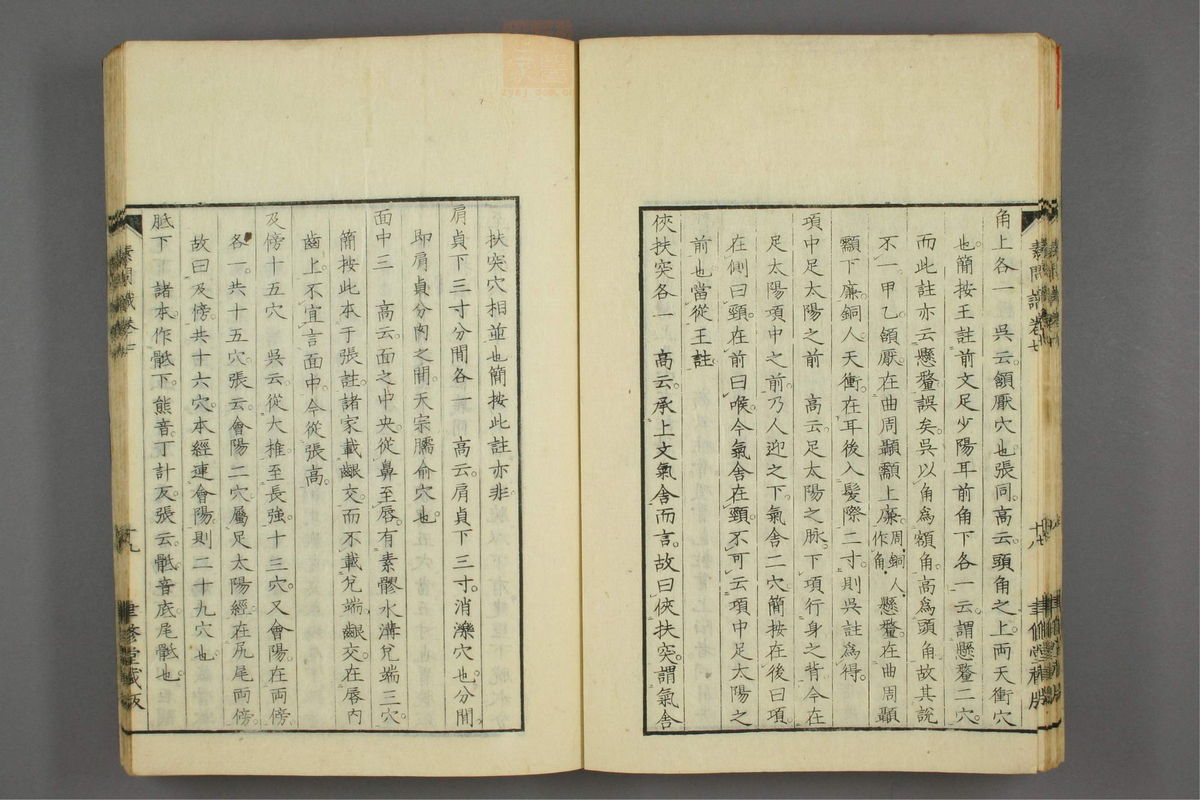 角上各一　吳云頷厭穴也張同。高云頭角之上兩天衝穴
也簡按王註前文足少陽耳前角下各一云謂懸釐二穴。
而此註亦云懸釐誤矣。吳以角為額角高為頭角故其說
不一甲乙頷厭在曲周顳顬上廉。周銅人作角。懸釐在曲周顳
顬下廉。銅人天衝在耳後入髮際二寸。則吳註為得。
項中足太陽之前　高云足太陽之脉下項行身之背今在
足太陽項中之前乃人迎之下。氣舍二穴簡按在後曰項
在側曰頸。在前曰喉。今氣舍在頸。不可云項中足太陽之
前也當從王註
俠扶突各一　高云。承上文氣舍而言。故曰俠扶突。謂氣舍
素問識卷七
十八
聿修堂藏版
扶突穴相並也簡按此註亦非。
肩貞下三寸分閒各一　高云。肩貞下三寸。消濼穴也分閒
即肩貞分肉之閒。天宗臑俞穴也。
面中三　高云。面之中央。從鼻至唇。有素髎水溝兌端三穴
簡按此本于張註。諸家載齦交而不載兌端。齦交在唇內
齒上。不宜言面中。今從張高。
及傍十五穴　吳云從大椎至長強。十三穴。又會陽在兩傍
各一。共十五穴。張云會陽二穴屬足太陽經在尻尾兩傍。
故曰及傍。共十六穴。本經連會陽。則二十九穴也
胝下下諸本。作骶下。熊音丁計反。張云。骶音底。尾骶也。
素問識卷七
十九
聿修堂藏版